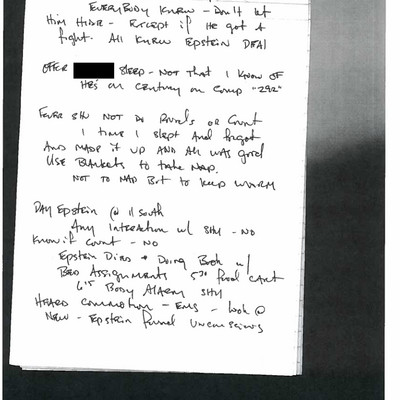 EVERYBODY KNEW - Don't let
Him HIDE - EXCEPT if He got A
fight. All KNEW EPSTEIN DEAL
OFFER SLEEP - NOT THAT I KNOW OF
HE'S on CENTURY on COMP "292"
SHU NOT DO Rounds or Count
1 time I slept And forgot
And MADE it UP AND All WAS good
USE BLANKETS to take NAP.
NOT to NAP But to keep WARM
DAY Epstein @ 11 South
Any Interaction w/ SHU - NO
Know if Count - NO
Epstein Died Doing Book w/
BED Assignments 5:30 food CART
6:15 BODY AlARM SHU
HEARD Commotion - EMS - look @
NEW - Epstein found Unconscious